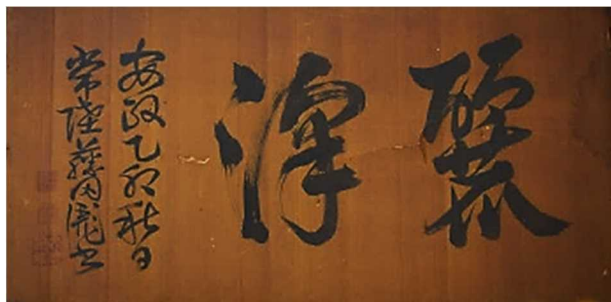 麗澤
安政乙卯秋日
常陸藤田彪書